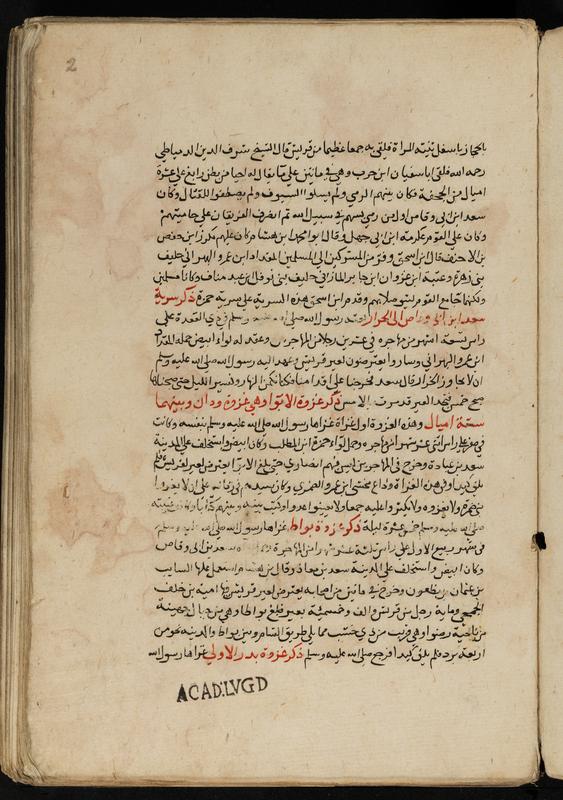 2
بالحجاز باسفل ثنية المراة فلقى به جمعا عظيما من قريش قال الشيخ شرف الدين الدمياطي
رحمه الله فلقي ابا سفيان ابن حرب وهو في مايتين على ما يقال له احيا من بطن رابغ على عشرة
اميال من الجحفة فكان بينهم الرمي ولم يسلوا السيوف ولم يصطفوا للقتال وكان
سعد ابن ابي وقاص اول من رمي بسهم في سبيل الله ثم انصرف الفريقان على حاميتهم
وكان على القوم عكرمة ابن ابي جهل وقال ابو محمد ابن هشام كان عليهم مكرز ابن حفص
بن الاخيف قال ابن اسحق وفر من المشركين الى المسلمين المقداد ابن عمرو البهراني حليف
بني زهرة وعتبة ابن غزوان ابن جابر المازني حليف بني نوفل ابن عبد مناف وكانا مسلمين
ولكنهما جا مع القوم ليتوصلا بهم وقدم ابن اسحق هذه السرية على سرية حمزة ذكر سرية
سعد ابن ابي وقاص الى الخرار رسول الله صلى الله وسلم في ذي القعدة على
راس تسعة اشهر من مهاجره في عشرين رجلا من المهاجرين وعقد له لواء ابيض حمله المقداد
ابن عمرو البهراني وساروا يعترضون لعير قريش وعهد اليه رسول الله صلى الله عليه وسلم
ان لا يجاوز الخرار قال سعد فخرجنا على اقدامنا فكنا نكمن النهار ونسير الليل حتى صبحناها
صبح خمس فنجد العير قد مرت بالامس ذكر غزوة الابوا وهي غزوة ودان وبينهما
ستة اميال وهذه الغزوة اول غزاة غزاها رسول الله صلى الله عليه وسلم بنفسه وكانت
في صفر على راس اثنى عشر شهرا من مهاجره وحمل لواء حمزة ابن المطلب وكان ابيض واستخلف على المدينة
سعد بن عبادة وخرج في المهاجرين ليس فيهم انصاري حتى بلغ الابوا يعترض لعير لقريش فلم
يلق كيدا وفي هذه الغزاة وادع مخشي ابن عمرو الضمري وكان سيدهم في زمانه على ان لا يغزو
بني ضمرة ولا يغزوه ولا يكثروا عليه جمعا ولا يعينوا عدوا وكتب بينه وبينهم كتابا وكانت غيبته
صلى الله عليه وسلم خمس عشرة ليلة ذكر غزوة بواط غزاها رسول الله صلى الله عليه وسلم
في شهر ربيع الاول على راس ثلثة عشر شهرا من المهاجرة سعد بن ابي وقاص
وكان ابيض واستخلف على المدينة سعد بن معاذ وقال بن هشام استعمل عليها السايب
بن عثمان بن مظعون وخرج في مايتين من اصحابه يعترض لعير قريش فيها امية بن خلف
الجمحي ومايه رجل من قريش والف وخمسمية بعير فبلغ بواطا وهي من جبال جهينة
من ناحية رضوا وهي قريب من ذي خشب مما يلي طريق الشام وبين بواط والمدينة نحو من
اربعة برد فلم يلق كيدا فرجع صلى الله عليه وسلم ذكر غزوة بدر الاولى غزاها رسول الله
ACAD.LVGD